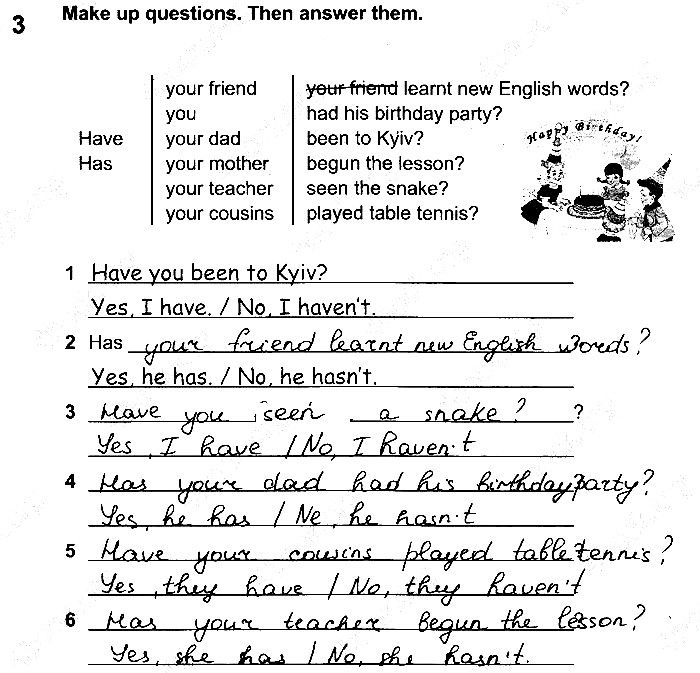 3 Make up questions. Then answer them.
your friend your friend learnt new English words?
you had his birthday party?
Have your dad been to Kyiv?
Has your mother begun the lesson?
your teacher seen the snake?
your cousins played table tennis?
Happy Birthday!
1 Have you been to Kyiv?
Yes, I have. / No, I haven't.
2 Has your friend learnt new English words?
Yes, he has. / No, he hasn't.
3 Have you seen a snake? ?
Yes, I have / No, I haven't
4 Has your dad had his birthday party?
Yes, he has / Ne, he hasn't
5 Have your cousins played table tennis?
Yes, they have / No, they haven't
6 Has your teacher begun the lesson?
Yes, she has / No, she hasn't.